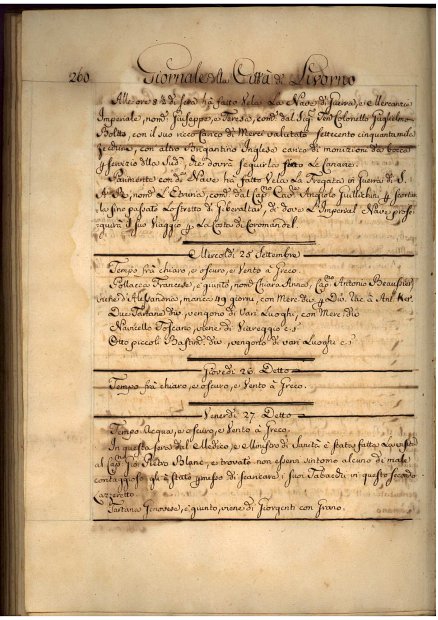 260 Giornale della Città di Livorno
Alle ore 8½ di sera hà fatto Vela La Nave di Guerra, e Mercanzia
Imperiale, nom.ª Giuseppe, e Teresa, com.ª dal Sig.r Ten.e Colonello Guglielmo
Boltz, con il suo ricco Carico di Merci valutato settecento cinquanta mila
Zecchini, con altro Brigantino Inglese carico di munizioni da bocca
servizio della Sud.ª, che dovrà seguirla fino Le Canarie.
Parimente con d.ª Nave hà fatto Vela La Fregata di Guerra di S.
A. R., nom.ª L'Etruria, com.ª dal Cap.no Cav.
la fino passato Lo stretto di Gibralterra, di dove L'Imperial Nave prose-
guirà il suo Viaggio La Costa di Coromandel.
Mercoldì 25 Settembre
Tempo frà chiaro, e oscuro, e Vento à Greco.
Pollacca Francese, è giunto, nom.ª Chiara Anna, Cap.no Antonio Beaussier,
viene d'Alessandria, manca 49 giorni, con Merc. die
Due Tartane div.e, vengono di vari Luoghi, con Merc. die
Navicello Toscano, viene di Viareggio c.s.
Otto piccoli Bastim.ti div.i, vengono di vari Luoghi c.s.
Giovedì 26 Detto
Tempo frà chiaro, e oscuro, e Vento à Greco.
Venerdì 27 Detto
Tempo Acqua, e oscuro, e Vento à Greco.
In questa sera dal Medico, e Ministro di Sanità è stata fatta La visita
al Cap.no Gio. Pietro Blanc, e trovato non esservi sintomo alcuno di male
contaggioso gli è stato messo di scaricare i suoi Tabacchi in questo secondo
Lazzeretto.
Tartana Genovese, è giunto, viene di Giorgenti con Grano.